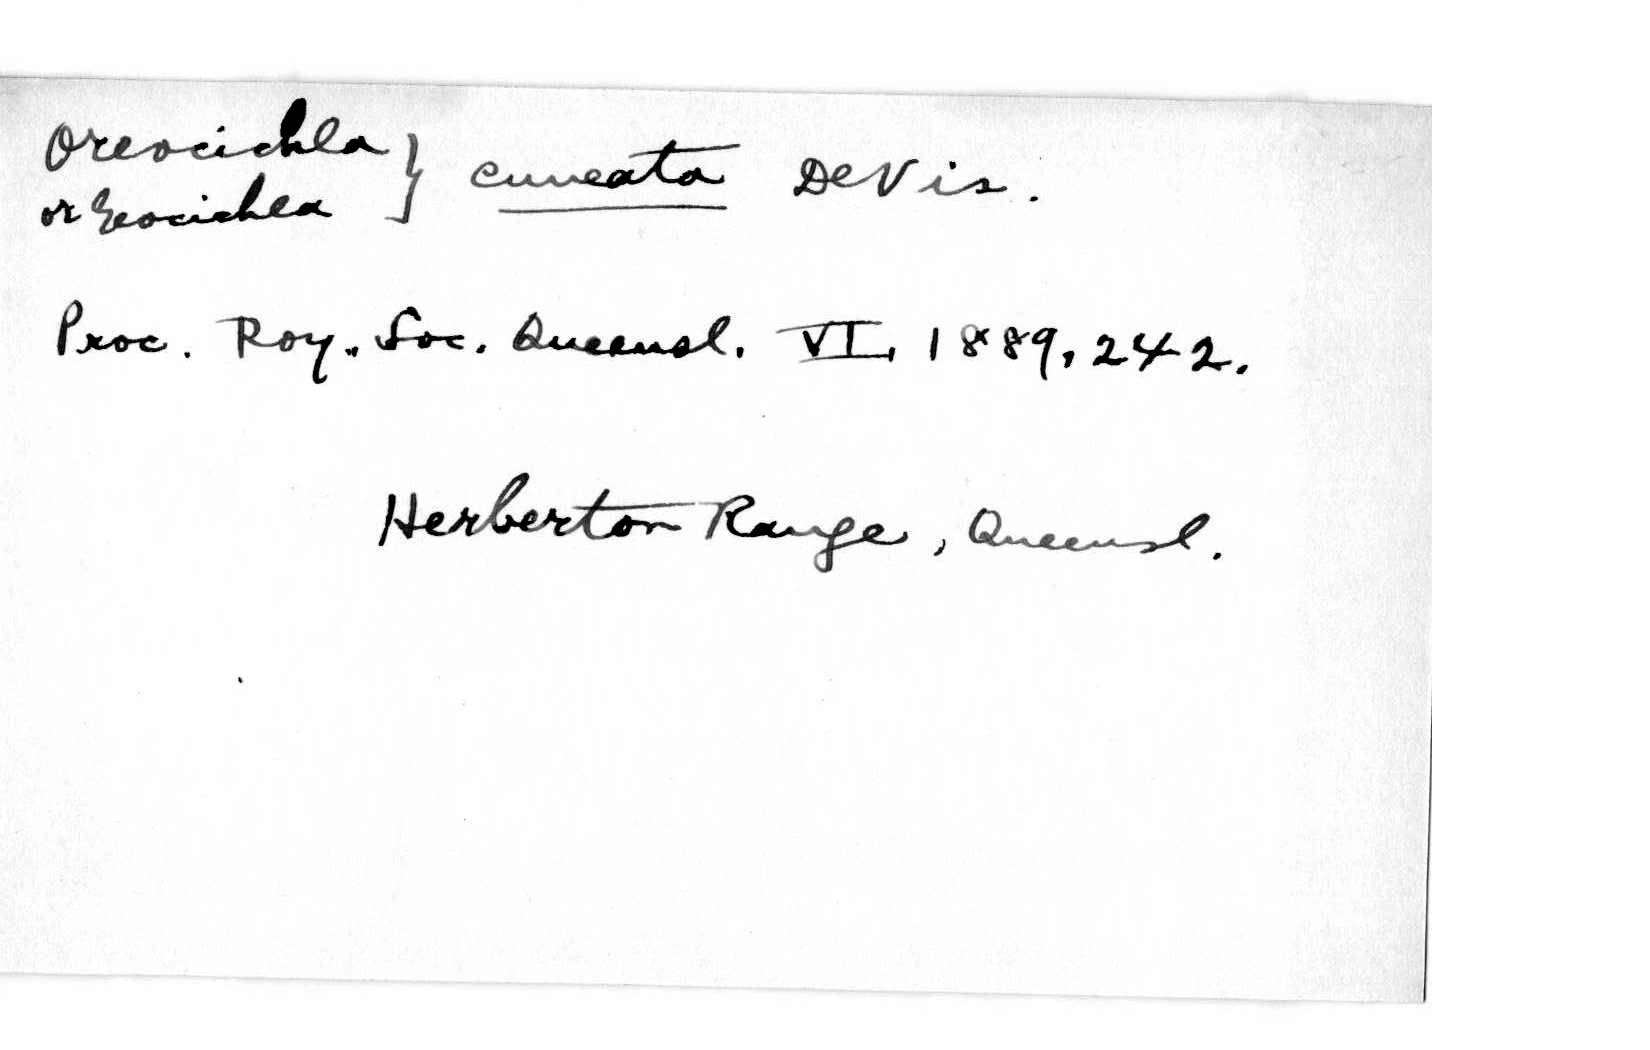 Oreocichla } cuneata De Vis.
or Geocichla
Proc. Roy. Soc. Queensl. VI, 1889, 242.
Herberton Range, Queensl.